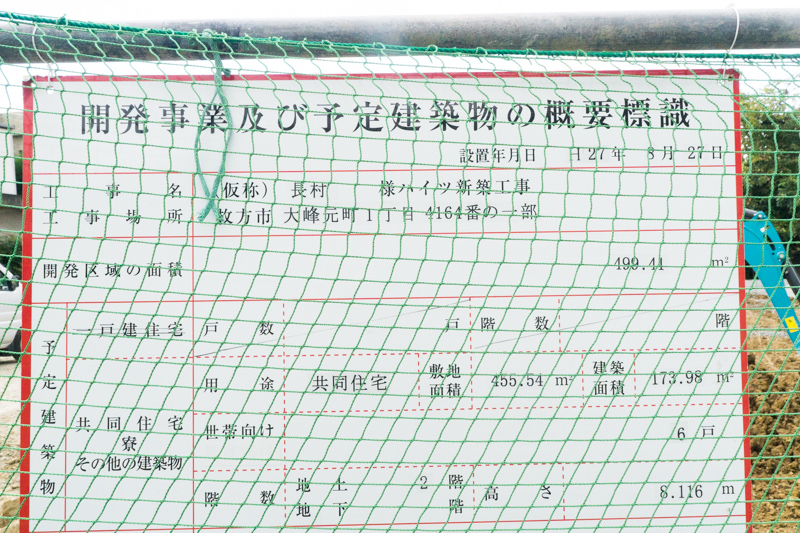 開発事業及び予定建築物の概要標識
設置年月日 H27年 8月 27日
工事名 (仮称) 長村 様ハイツ新築工事
工事場所 枚方市 大峰元町1丁目 4164番の一部
開発区域の面積 499.41 m²
予定建築物
一戸建住宅 戸数 戸 階数 階
用途 共同住宅 敷地面積 455.54 m² 建築面積 173.98 m²
共同住宅
寮
その他の建築物
世帯向け 6 戸
階数 地上 2 階 高さ 8.116 m
地下 階